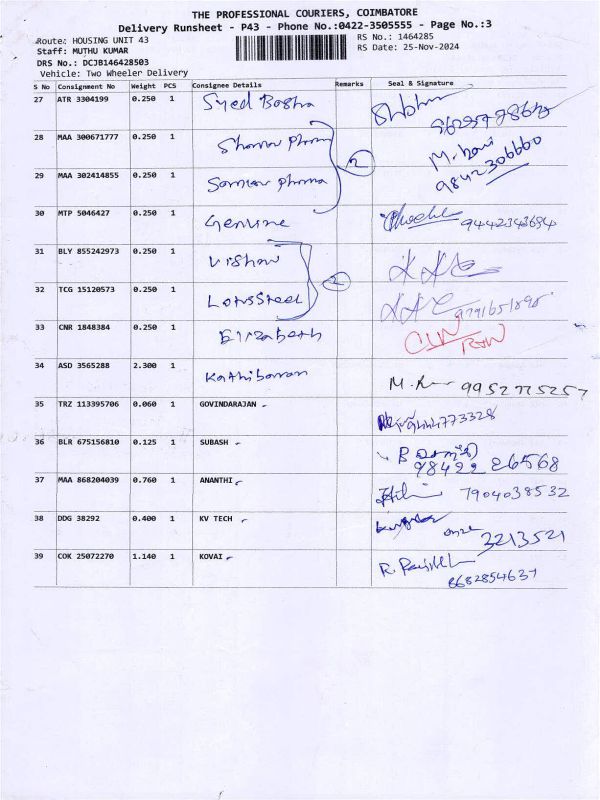 THE PROFESSIONAL COURIERS, COIMBATORE
Delivery Runsheet - P43 - Phone No.:0422-3505555 - Page No.:3
Route: HOUSING UNIT 43
RS No.: 1464285
Staff: MUTHU KUMAR
RS Date: 25-Nov-2024
DRS No.: DCJB146428503
Vehicle: Two Wheeler Delivery
S No Consignment No Weight PCS Consignee Details Remarks Seal & Signature
27 ATR 3304199 0.250 1 Syed Basha
28 MAA 300671777 0.250 1
M. 9842306660
29 MAA 302414855 0.250 1
30 MTP 5046427 0.250 1 Genuine 9442343694
31 BLY 855242973 0.250 1
32 TCG 15120573 0.250 1 Lotus Steel
33 CNR 1848384 0.250 1 Elizabeth
34 ASD 3565288 2.300 1 Kathibavan M. 9952775257
35 TRZ 113395706 0.060 1 GOVINDARAJAN
36 BLR 675156810 0.125 1 SUBASH B 98422 26568
37 MAA 868204039 0.760 1 ANANTHI 7904038532
38 DDG 38292 0.400 1 KV TECH 3213521
39 COK 25072270 1.140 1 KOVAI R. 8682854637